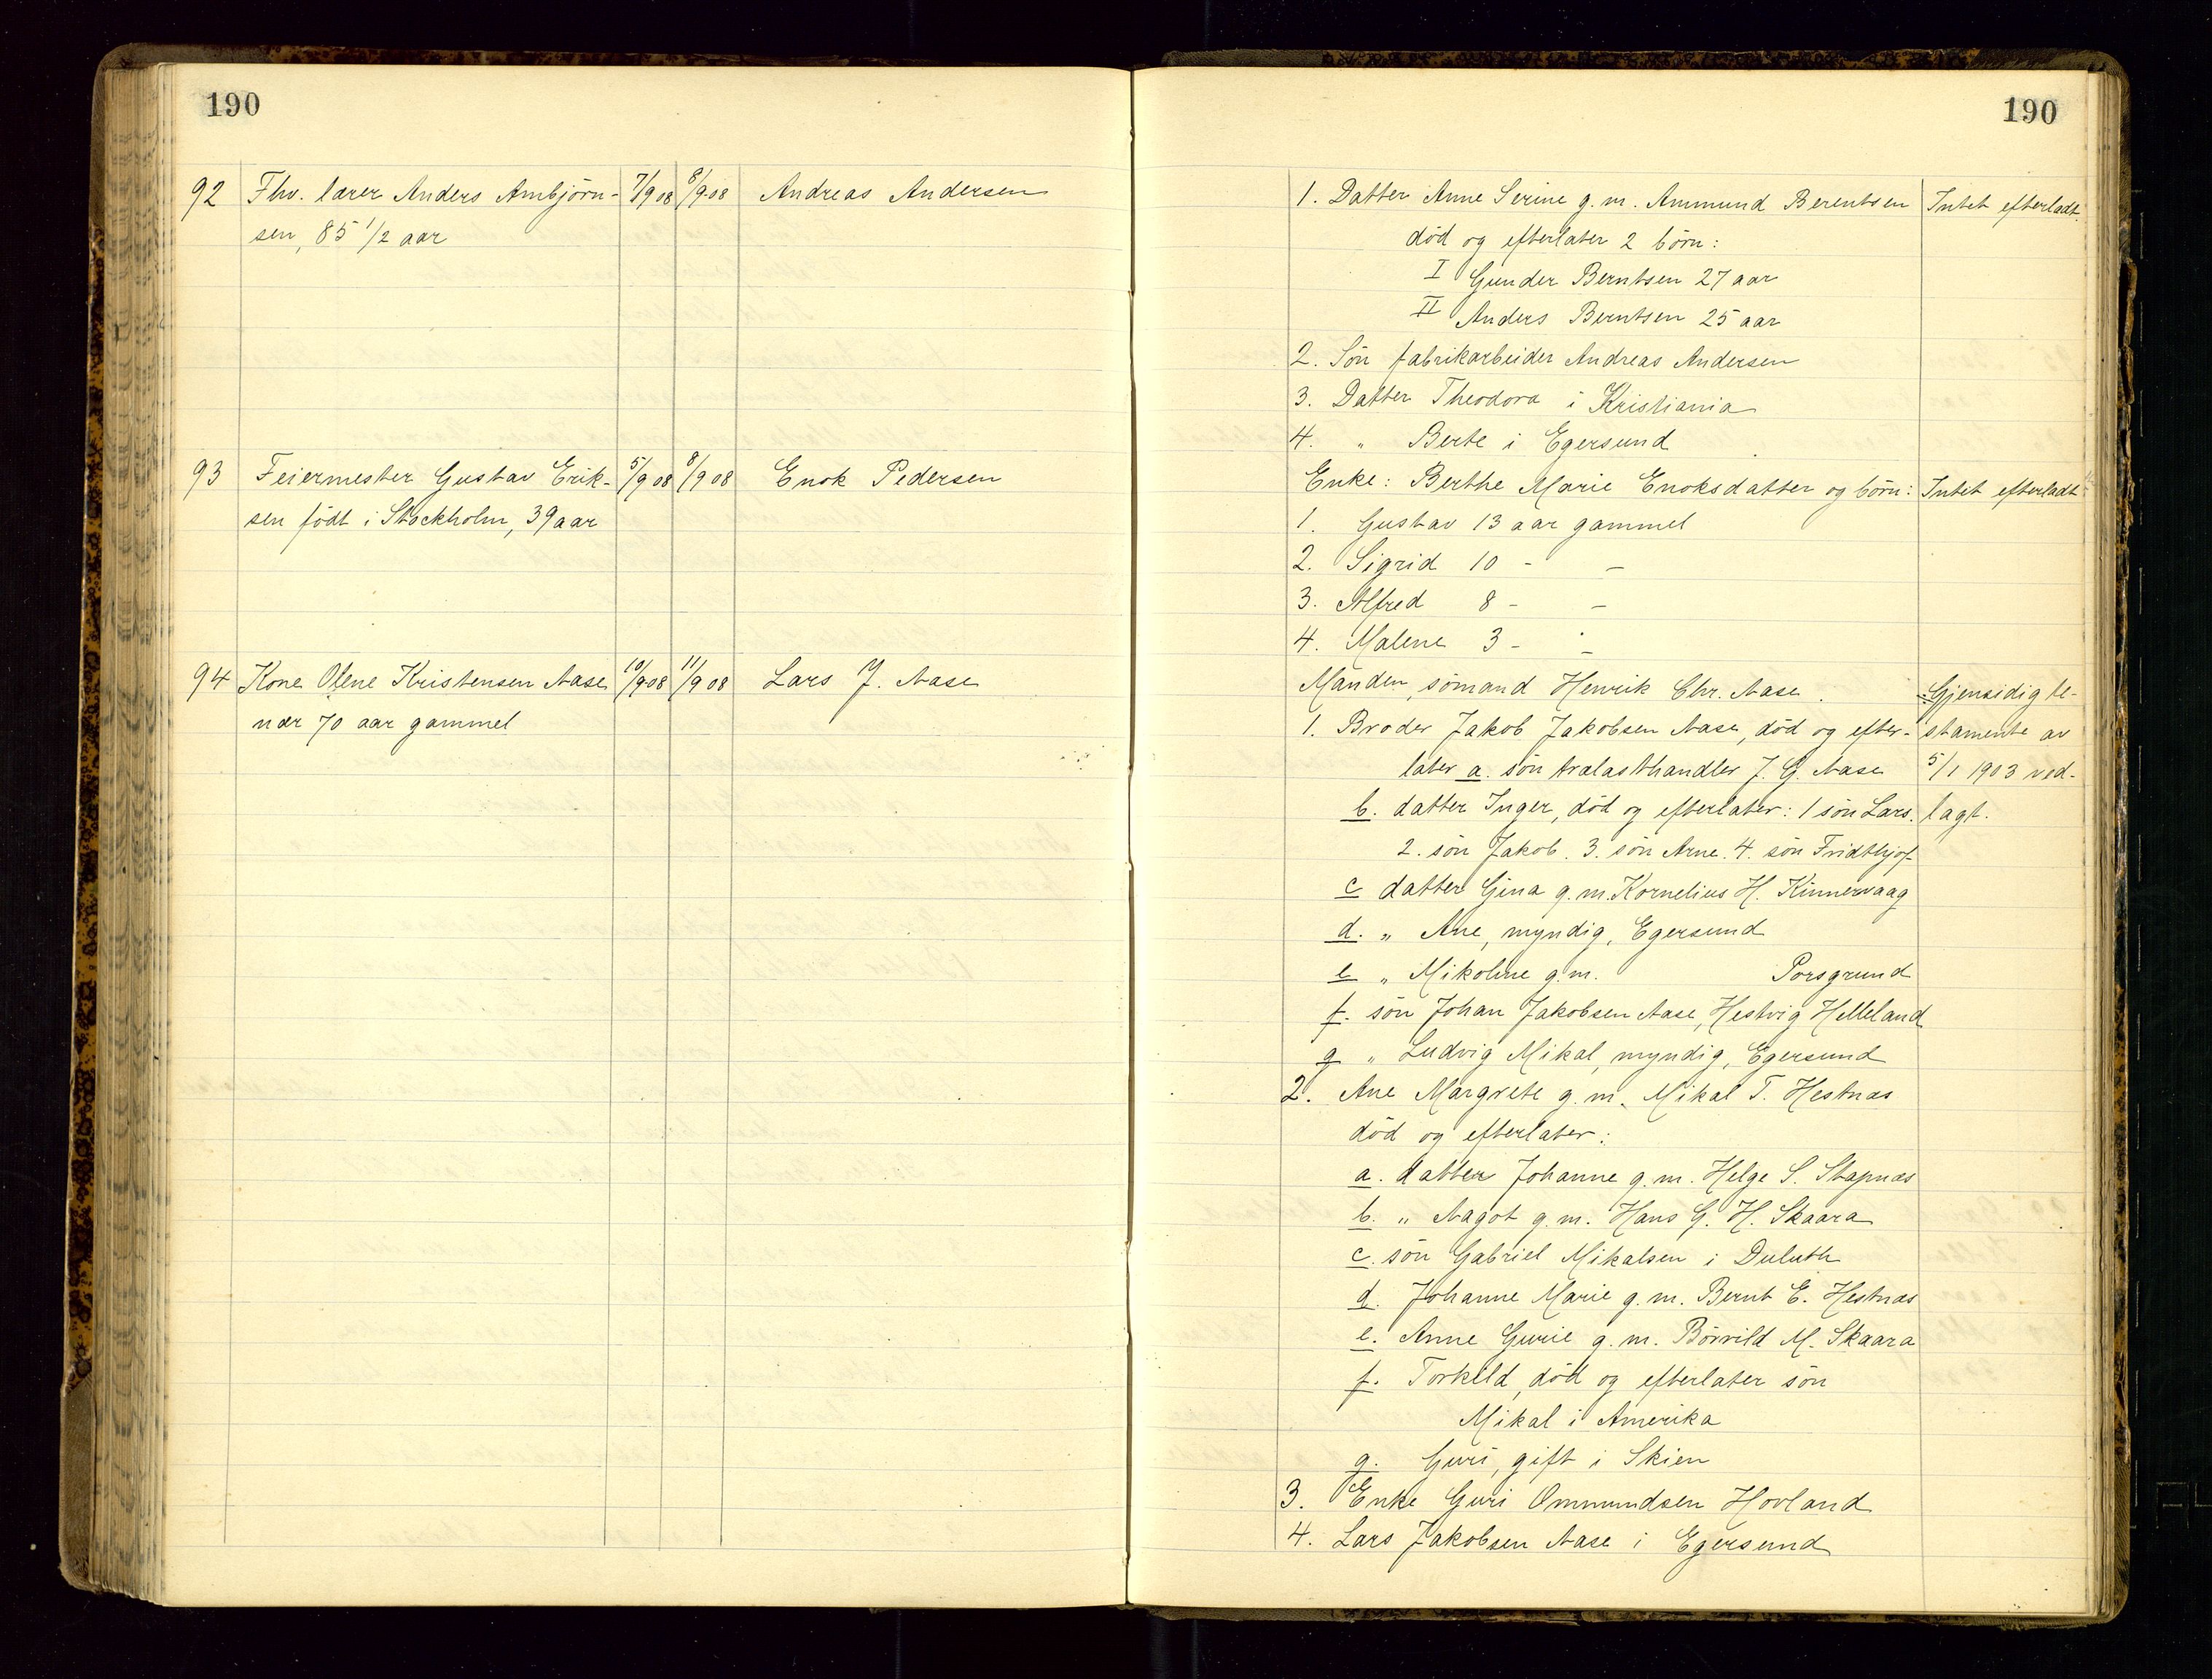 190
92 Fhv. lærer Anders Ambjörn- 7/9 08 8/9 08 Andreas Andersen
sen, 85 1/2 aar
93 Feiermester Gustav Erik- 5/9 08 8/9 08 Enok Pedersen
sen födt i Stockholm, 39 aar
94 Kone Olene Kristensen Aase 10/9 08 11/9 08 Lars J. Aase
nær 70 aar gammel
190
1. Datter Anne Serine g. m. Ammund Berentsen Intet efterladt.
död og efterlater 2 börn:
I Gunder Berntsen 27 aar
II Anders Berntsen 25 aar
2. Sön fabrikarbeider Andreas Andersen
3. Datter Theodora i Kristiania
4. " Berte i Egersund
Enke: Berthe Marie Enoksdatter og börn: Intet efterladt
1. Gustav 13 aar gammel
2. Sigrid 10 - -
3. Alfred 8 - -
4. Malene 3 - -
Manden, sömand Henrik Chr. Aase. Gjensidig te-
1. Broder Jakob Jakobsen Aase, död og efter- stamente av
later a. sön trælasthandler J. G. Aase 5/1 1903 ved-
b. datter Inger, död og efterlater: 1 sön Lars. lagt.
2. sön Jakob. 3. sön Arne. 4. sön Fridthjof
c datter Gina g. m. Kornelius H. Kinnervaag
d. " Ane, myndig, Egersund
e " Mikoline g. m. Porsgrund
f. sön Johan Jakobsen Aase, Hestvig Helleland
g " Ludvig Mikal, myndig, Egersund
2. Ane Margrete g. m. Mikal T. Hestnæs
död og efterlater:
a. datter Johanne g. m. Helge S. Stapnæs
b. " Aagot g. m. Hans G. H. Skaara
c. sön Gabriel Mikalsen i Duluth
d. Johanne Marie g. m. Bernt E. Hestnæs
e. Anne Gurie g. m. Börrild M. Skaara
f. Torkild, död og efterlater sön
Mikal i Amerika
g. Guri, gift i Skien
3. Enke Guri Ommundsen Hovland
4. Lars Jakobsen Aase i Egersund